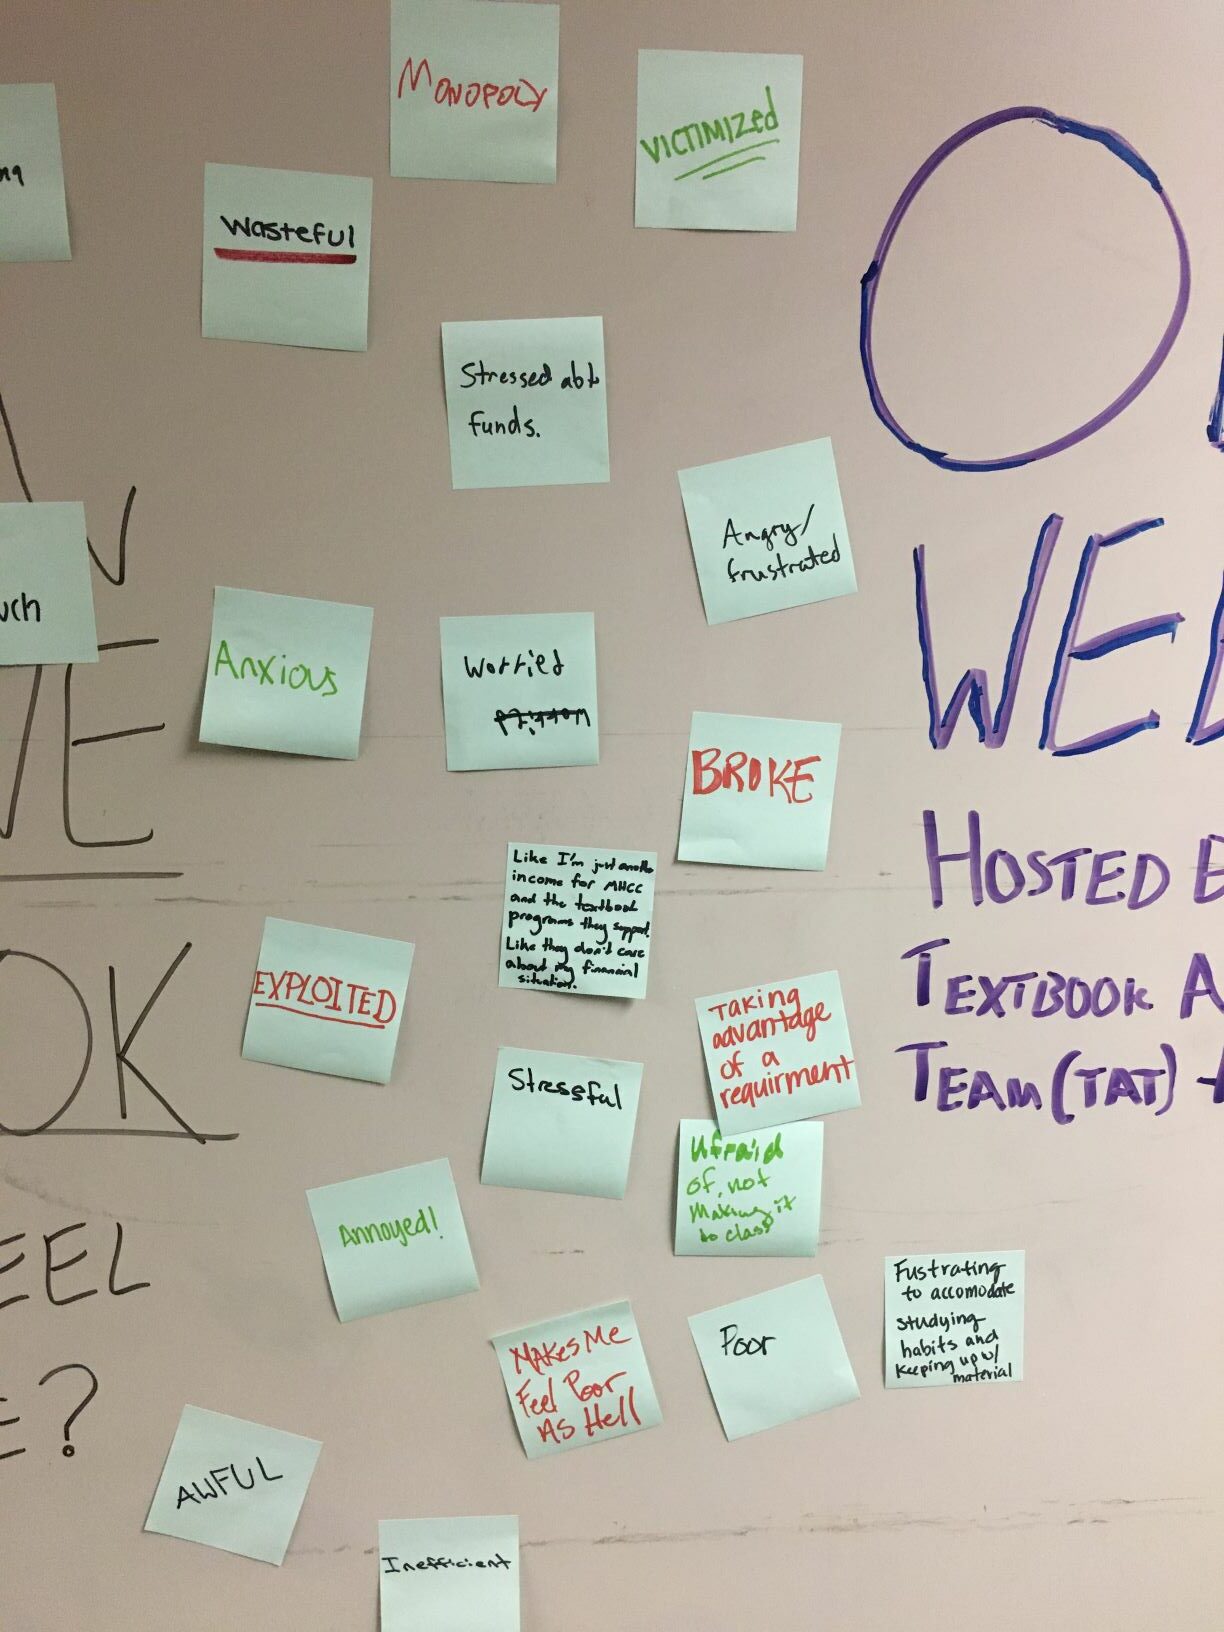 MONOPOLY
VICTIMIZed
Wasteful
Stressed abt
funds.
Angry/
frustrated
Anxious
Worried
BROKE
Like I'm just another
income for MHCC
and the textbook
programs they support.
Like they don't care
about my financial
situation.
EXPLOITED
Taking
advantage
of a
requirment
Stressful
Afraid
of not
Making it
to class
Annoyed!
Makes Me
Feel Poor
As Hell
Poor
Fustrating
to accomodate
studying
habits and
keeping up w/
material
AWFUL
Inefficient
VE
OK
EEL
E?
O
WEE
HOSTED B
TEXTBOOK A
TEAM (TAT)